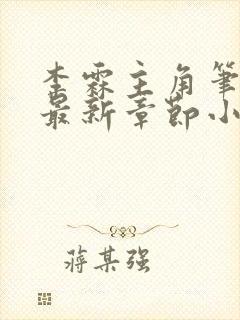 李霖主角笔
最新章节小
蒋某强